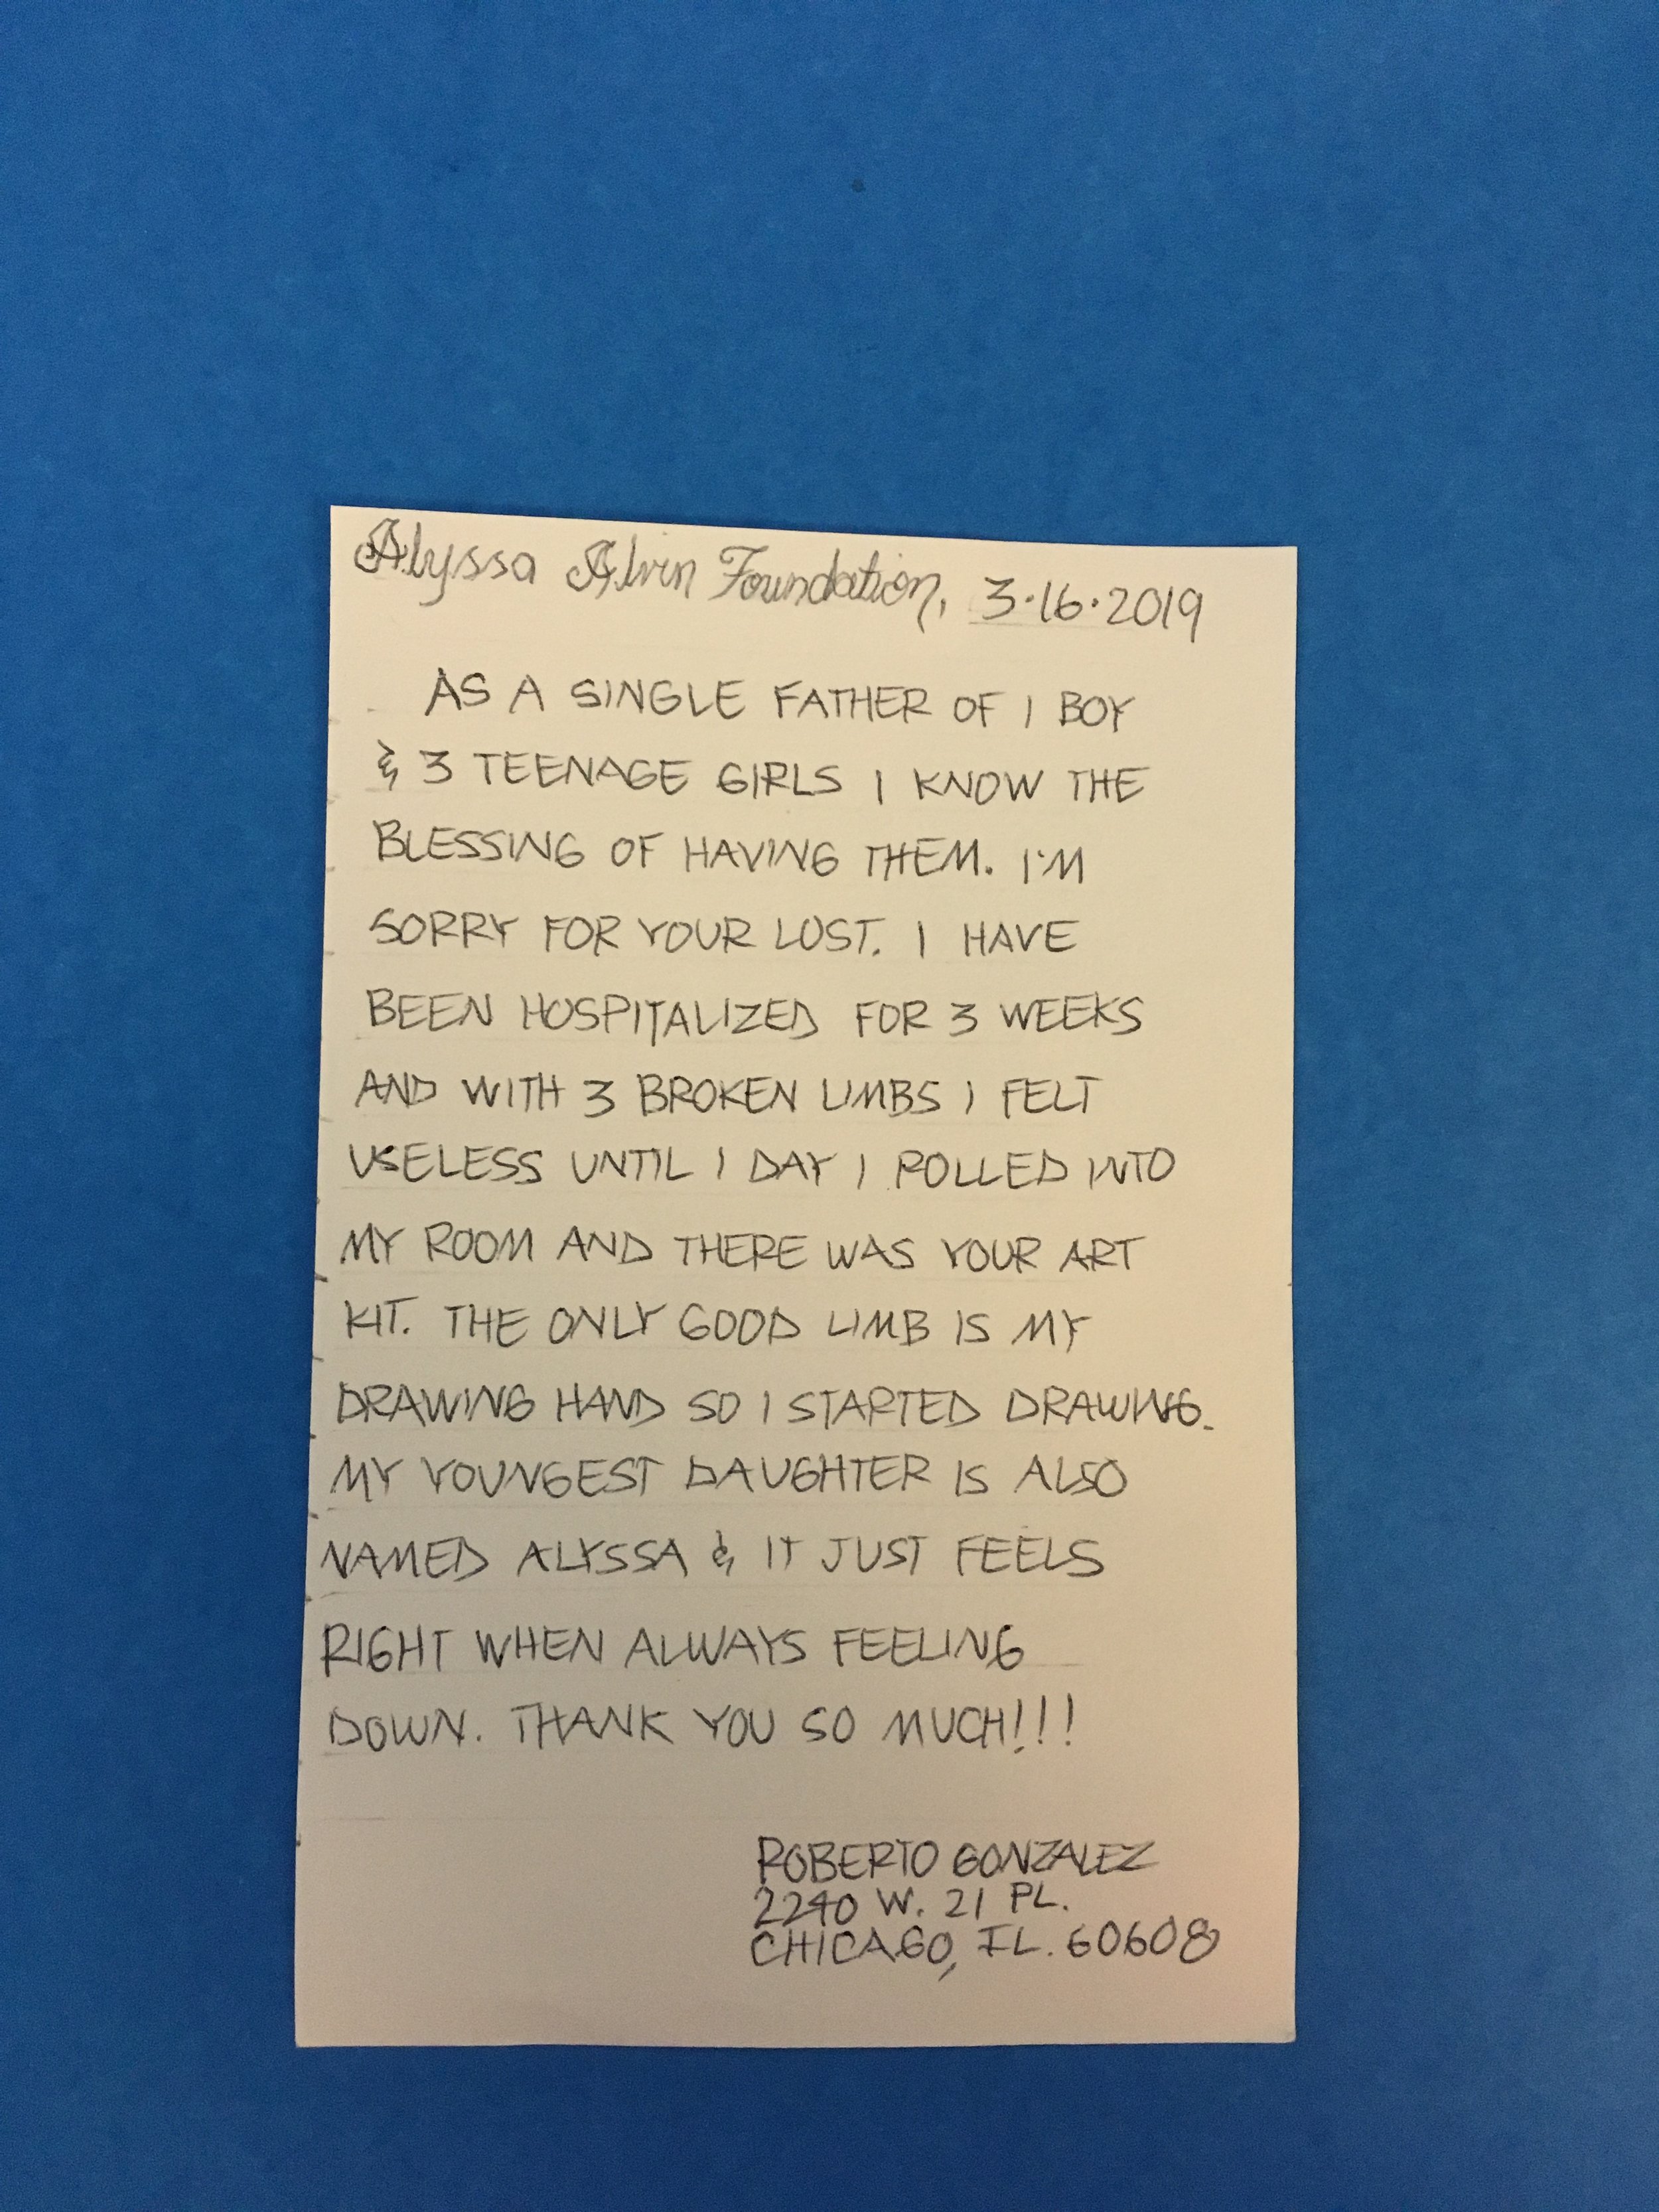 Alyssa Alvin Foundation, 3·16·2019
AS A SINGLE FATHER OF 1 BOY
& 3 TEENAGE GIRLS I KNOW THE
BLESSING OF HAVING THEM. I'M
SORRY FOR YOUR LOST. I HAVE
BEEN HOSPITALIZED FOR 3 WEEKS
AND WITH 3 BROKEN LIMBS I FELT
USELESS UNTIL 1 DAY I ROLLED INTO
MY ROOM AND THERE WAS YOUR ART
KIT. THE ONLY GOOD LIMB IS MY
DRAWING HAND SO I STARTED DRAWING.
MY YOUNGEST DAUGHTER IS ALSO
NAMED ALYSSA & IT JUST FEELS
RIGHT WHEN ALWAYS FEELING
DOWN. THANK YOU SO MUCH!!!
ROBERTO GONZALEZ
2240 W. 21 PL.
CHICAGO, IL. 60608